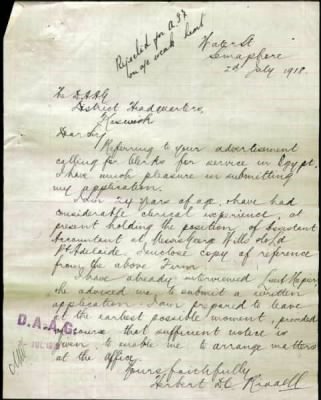 Rejected for A.I.F
on a/c weak heart
Water St
Semaphore
2d July 1918.
The D.A.A.G
District Headquarters,
Keswick
Dear Sir,
Referring to your advertisement
calling for clerks for service in Egypt,
I have much pleasure in submitting
my application.
I am 24 years of age, & have had
considerable clerical experience, at
present holding the position of Assistant
Accountant at Messrs Geo Wills & Co Ld
Pt Adelaide. I enclose copy of reference
from the above Firm.
I have already interviewed Lieut Napier,
who advised me to submit a written
application. I am prepared to leave
at the earliest possible moment, provided
of course that sufficient notice is
given, to enable me to arrange matters
at the office.
Yours faithfully
Herbert
D.A.A.G.
JUL 1918